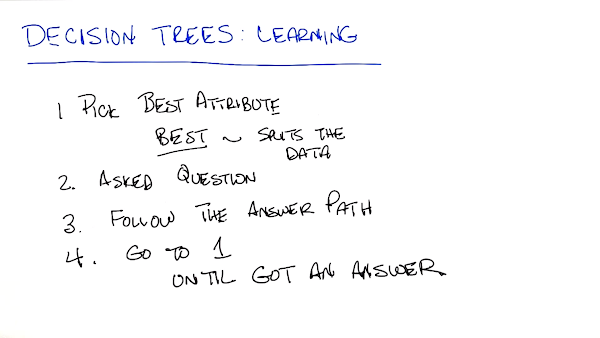 DECISION TREES: LEARNING
1 PICK BEST ATTRIBUTE
BEST ~ SPLITS THE
DATA
2. ASKED QUESTION
3. FOLLOW THE ANSWER PATH
4. GO TO 1
UNTIL GOT AN ANSWER.